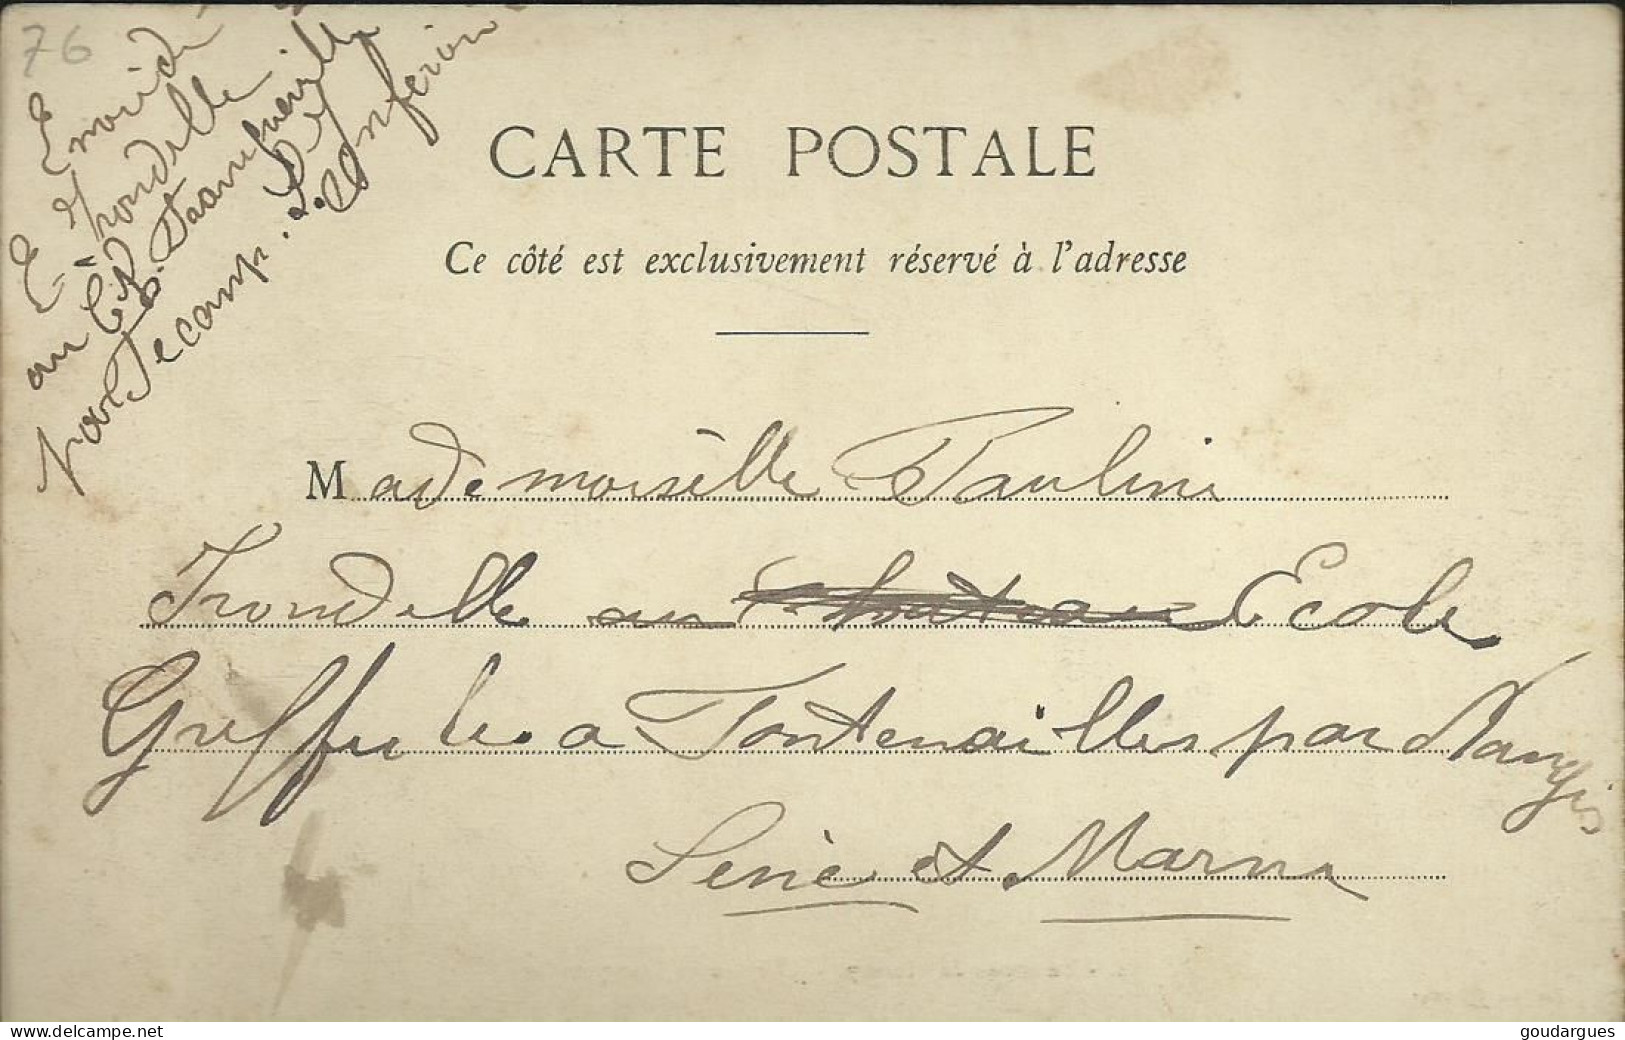 76
Envoi de
E Trondelle
au Chau
par Fecamp. S. Inferieur
CARTE POSTALE
Ce côté est exclusivement réservé à l'adresse
Mademoisèlle Pauline
Trondelle au Chateau Ecole
Greffulhe a Fontenailles par Nangis
Seine et Marne
goudargues on www.delcampe.net